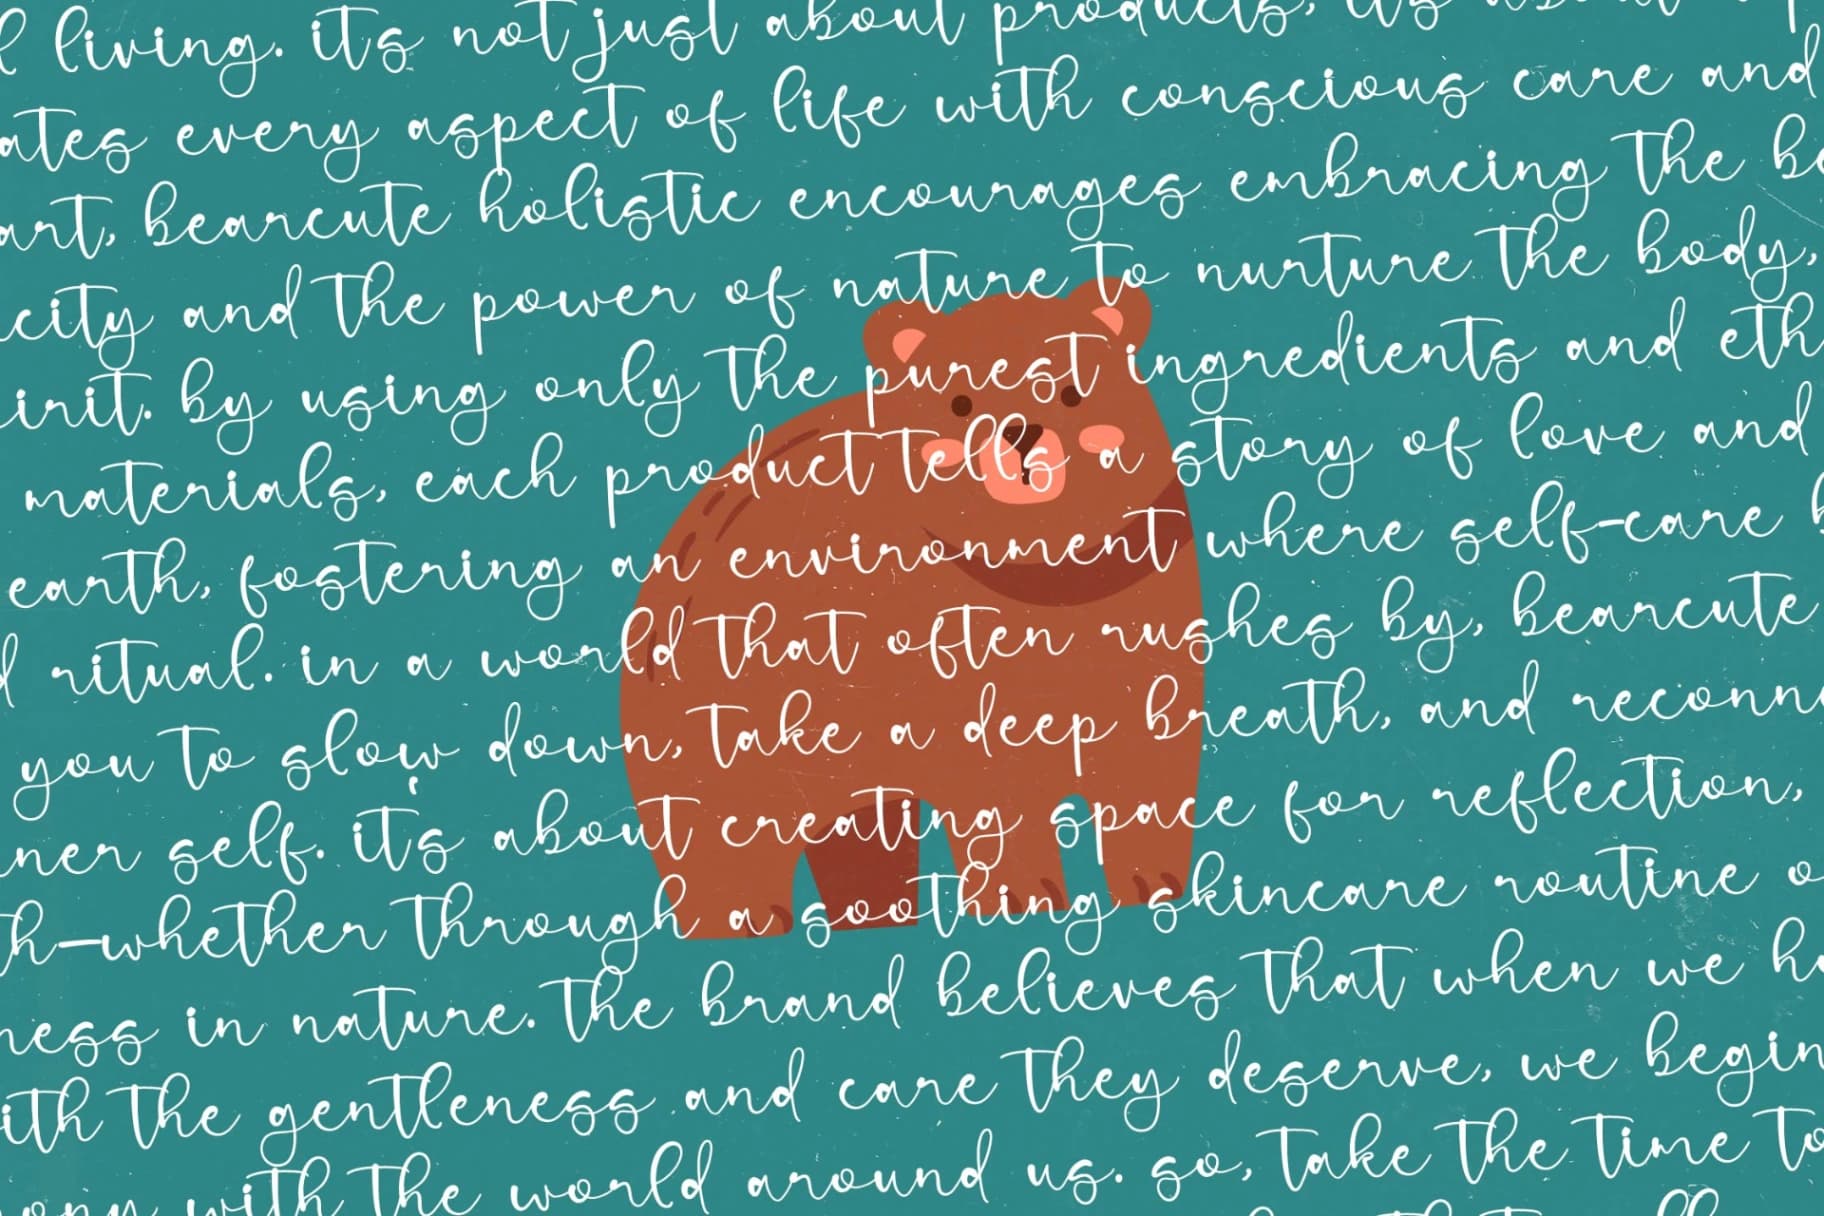 l living. it's not just about products, it's about
ates every aspect of life with conscious care and
art, bearcute holistic encourages embracing the be
city and the power of nature to nurture the body,
irit. by using only the purest ingredients and eth
materials, each product tells a story of love and
earth, fostering an environment where self-care b
d ritual. in a world that often rushes by, bearcute
you to slow down, take a deep breath, and reconne
ner self. it's about creating space for reflection,
th—whether through a soothing skincare routine o
ness in nature. the brand believes that when we ho
ith the gentleness and care they deserve, we begin
ony with the world around us. so, take the time to